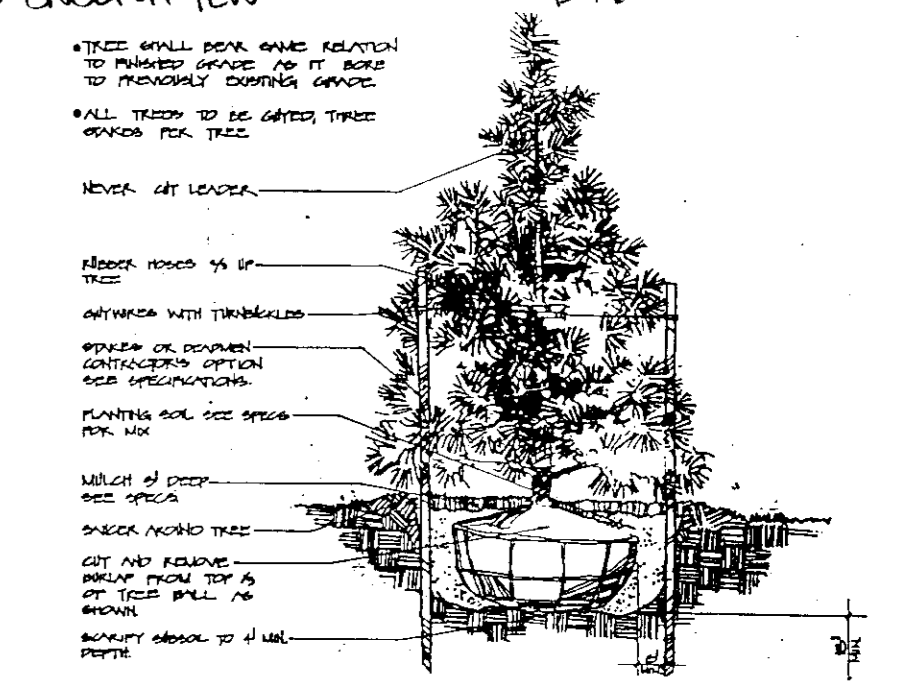 ENGLISH YEW
• TREE SHALL BEAR SAME RELATION
TO FINISHED GRADE AS IT BORE
TO PREVIOUSLY EXISTING GRADE.
• ALL TREES TO BE GUYED, THREE
STAKES PER TREE
NEVER CUT LEADER
RUBBER HOSES UP
TREE
GUYWIRES WITH TURNBUCKLES
STAKES OR DEADMEN
CONTRACTOR'S OPTION
SEE SPECIFICATIONS.
PLANTING SOIL SEE SPECS
FOR MIX
MULCH DEEP
SEE SPECS
SAUCER AROUND TREE
CUT AND REMOVE
BURLAP FROM TOP
OF TREE BALL AS
SHOWN
SCARIFY SUBSOIL TO 4" MIN.
DEPTH.
MIN